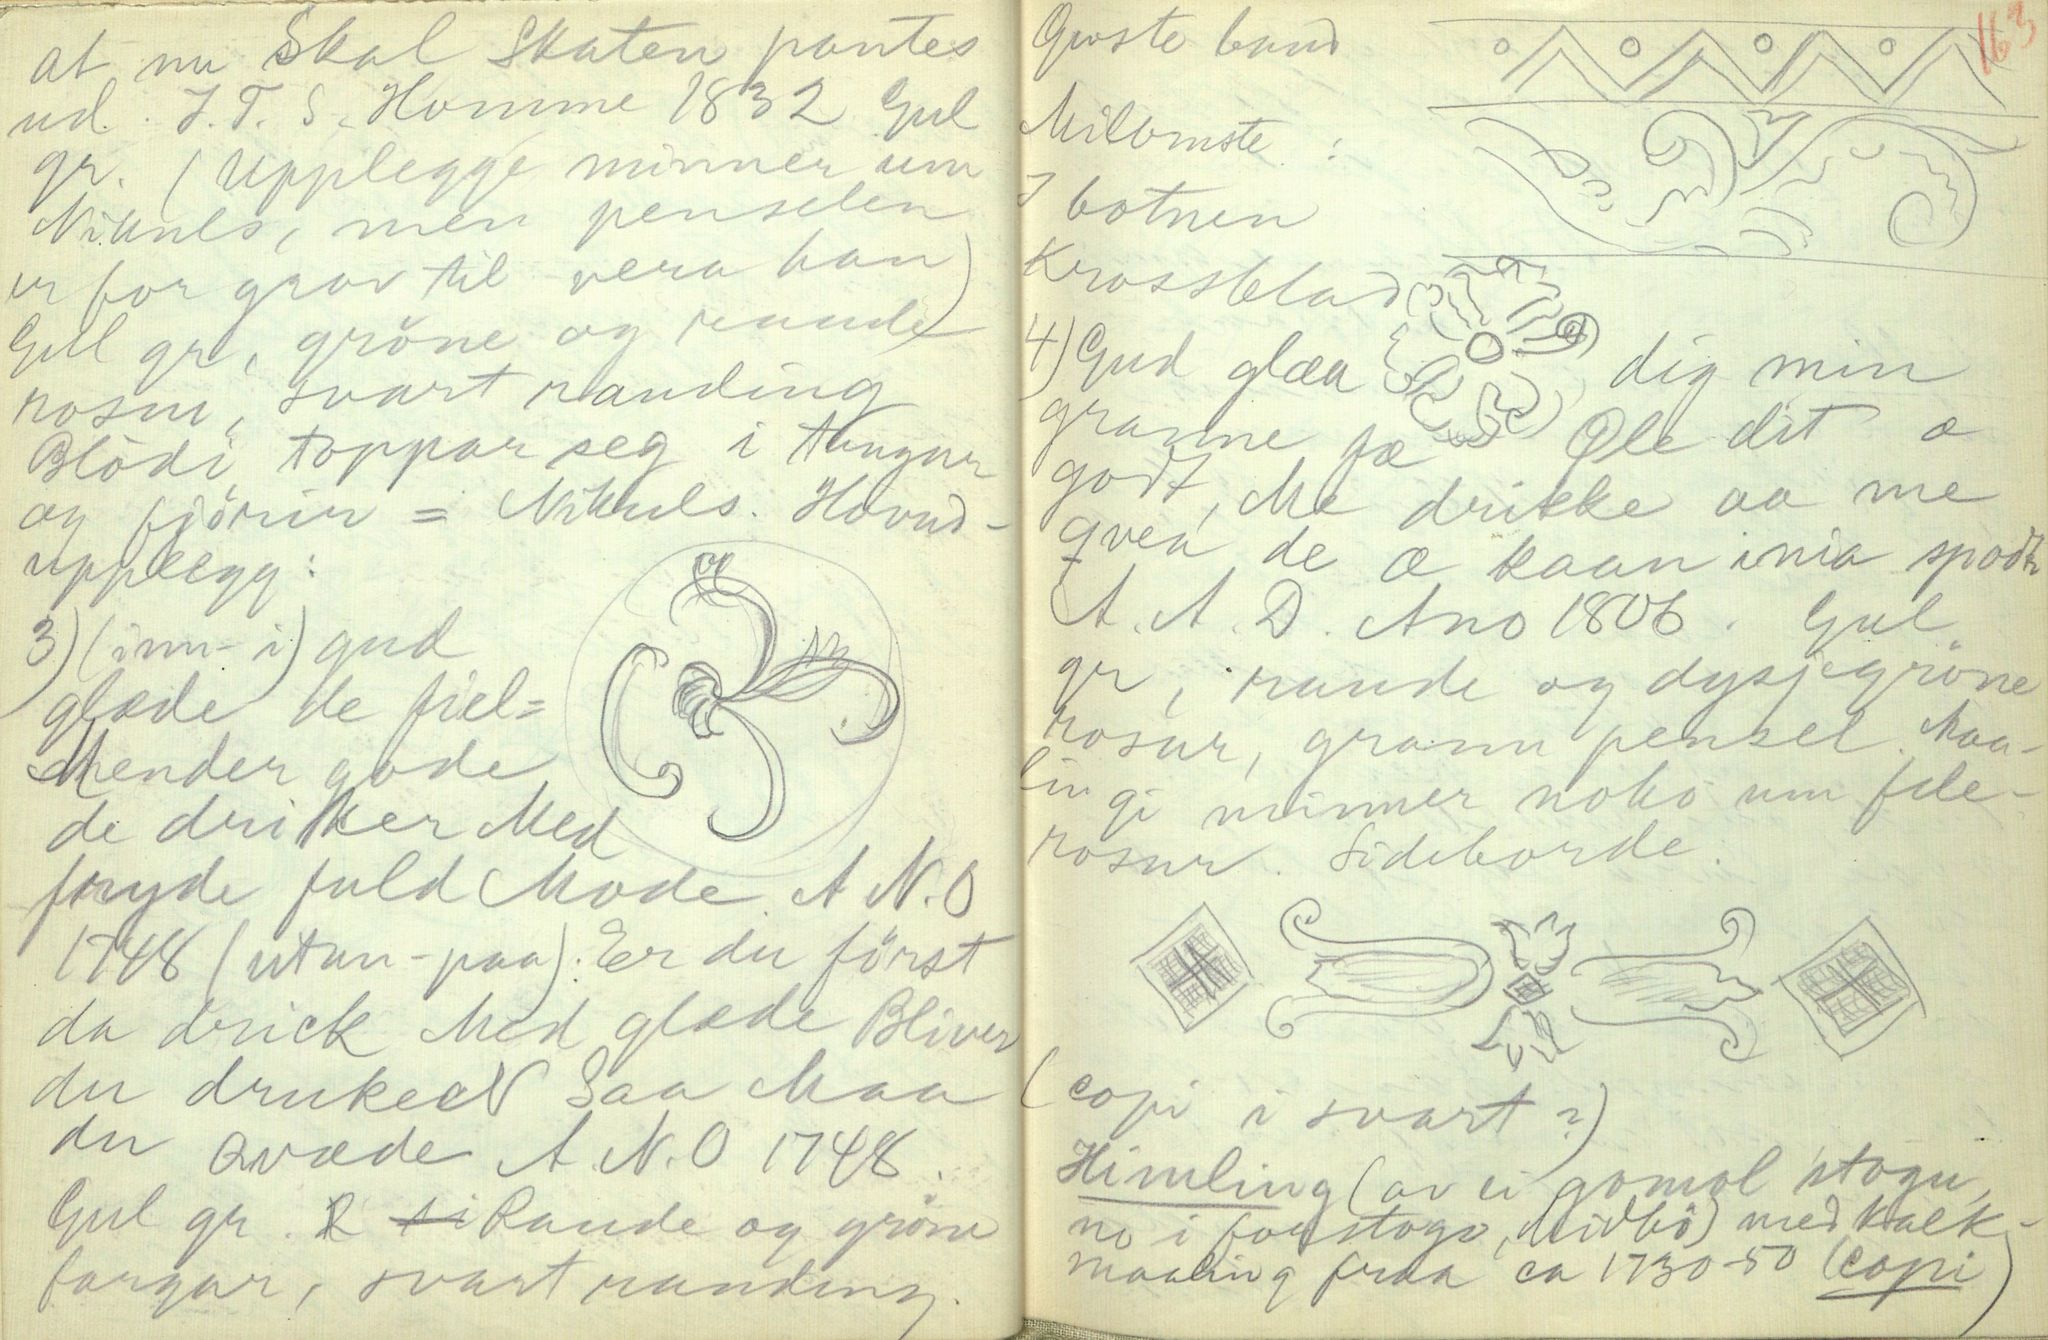 at nu Skal Skaten pantes
ud. J. T. S. Homme 1832 Gul
gr. (Upplegge minner um
Nikuls, men penselen
er for grov til vera han)
Gul gr, gröne og raude
rosur, svart randing
Blödi toppar seg i tungur
og fjörir = Nikuls. Hovud-
upplegg:
3) (inn-i) gud
glæde de fiel=
Mender gode
de driker Med
fryde fuld Mode A N.O
1748 (utan-paa). Er du först
da drick Med glæde Bliver
du drukeN Saa Maa
du Qvæde A. N. O 1748.
Gul gr. Raude og gröne
fargar, svart randing.
163
Övste band
Milomste :
I botnen
Krossblad
4) Gud glæa dig min
granne fæ Øle dit æ
godt, Me drikke aa me
qvea de æ kaan inia spodt
A. A. D. Ano 1806. Gul
gr, raude og dysjegröne
rosur, grann pensel. Maa-
lingi minner noko um file-
rosur. Sideborde:
(copi i svart?)
Himling (av ei gomol stogu,
no i forstogo, Midbö) med kalk-
maaling fraa ca 1730-50 (copi)